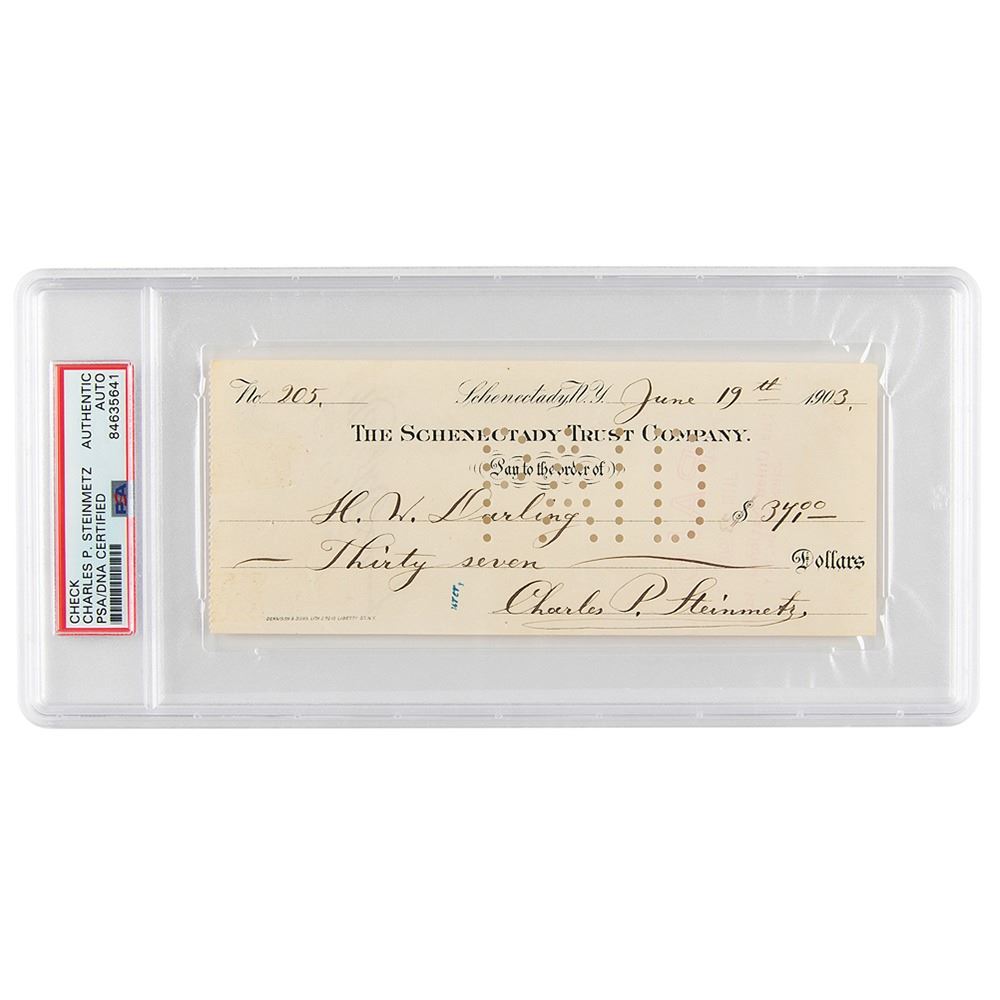 CHECK AUTHENTIC
CHARLES P. STEINMETZ AUTO
PSA/DNA CERTIFIED 84635641
PSA
No 205.
Schenectady, N.Y. June 19th 1903.
THE SCHENECTADY TRUST COMPANY.
Pay to the order of
H. W. Darling $ 37,00
Thirty seven Dollars
Charles P. Steinmetz,
PAID